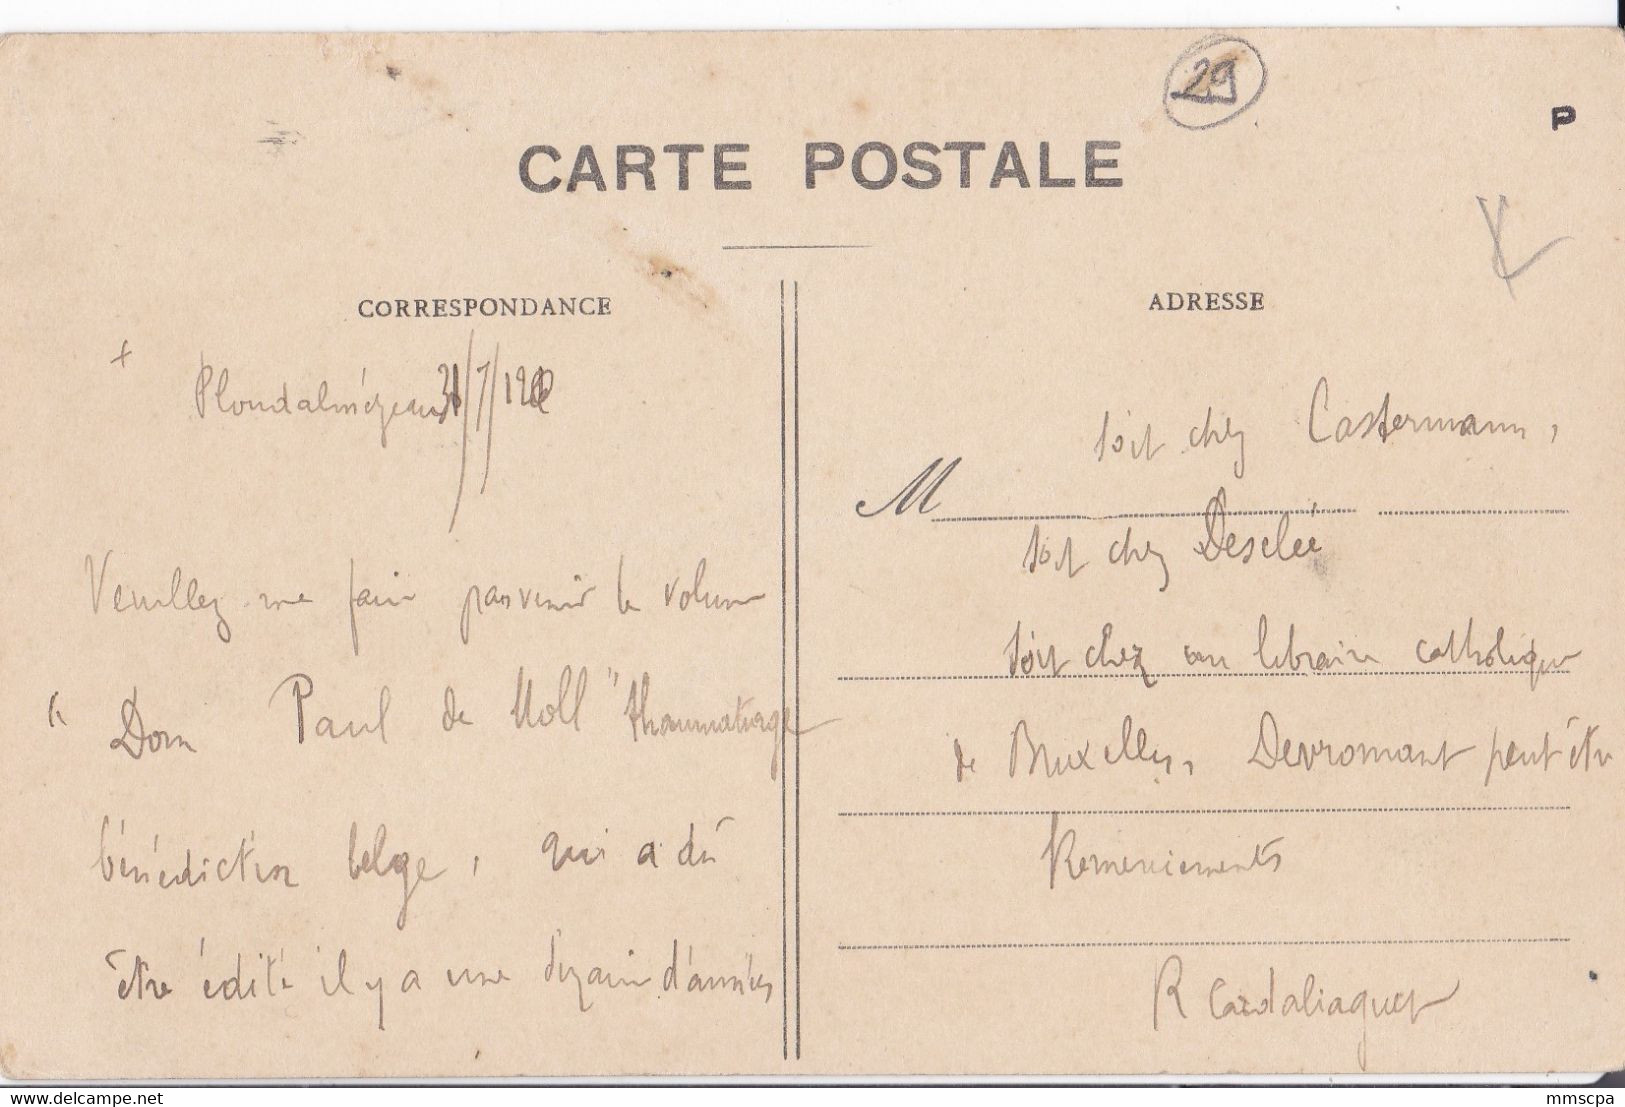 29
P
CARTE POSTALE
CORRESPONDANCE
ADRESSE
+
Ploudalmézeau 31/7/19
Veuillez me faire parvenir le volume
" Dom Paul de Moll " thaumaturge
bénédictin belge, qui a dû
être édité il y a une dizaine d'années
soit chez Castermann,
M
soit chez Desclée
soit chez un libraire catholique
de Bruxelles, Devromant peut être
Remerciements
R Cardaliaguet
delcampe.net
mmscpa